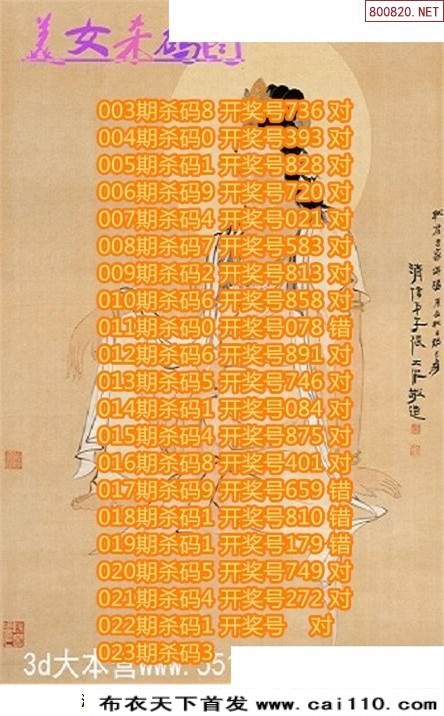 800820.NET
美女杀码图
003期杀码8 开奖号736 对
004期杀码0 开奖号393 对
005期杀码1 开奖号828 对
006期杀码9 开奖号720 对
007期杀码4 开奖号021 对
008期杀码7 开奖号583 对
009期杀码2 开奖号813 对
010期杀码6 开奖号858 对
011期杀码0 开奖号078 错
012期杀码6 开奖号891 对
013期杀码5 开奖号746 对
014期杀码1 开奖号084 对
015期杀码4 开奖号875 对
016期杀码8 开奖号401 对
017期杀码9 开奖号659 错
018期杀码1 开奖号810 错
019期杀码1 开奖号179 错
020期杀码5 开奖号749 对
021期杀码4 开奖号272 对
022期杀码1 开奖号 对
023期杀码3
3d大本营www.551
布衣天下首发 www.cai110.com